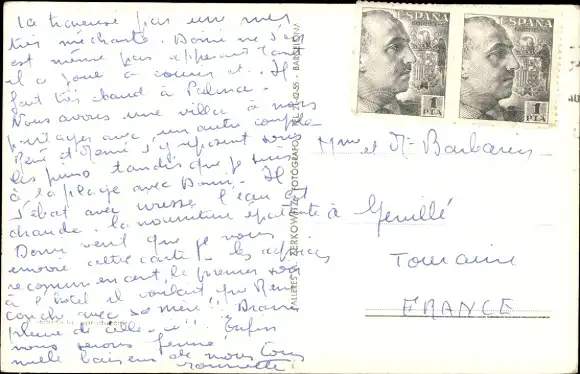 La traversée pas une mer
très méchante. Domi ne s'en
est même pas apperçu tant
il a joué à courir et. Il
fait très chaud à Palma.
Nous avons une villa à nous
partagée avec un autre couple
René et Rémi s'y reposent sous
les pins tandis que je suis
à la plage avec Domi. Il
s'ébat avec ivresse l'eau est
chaude. la nourriture épatante
Domi veut que je vous
envoie cette carte. les
recommencent, le premier soir
à l'hotel il voulait que René
couche avec sa mère!!
pleine de celle-ci!! Enfin
nous serons
mille baisers de nous tous
ESPAÑA
CORREOS
1
PTA
ESPAÑA
CORREOS
1
PTA
Mme et Mr Barbarin
à Genillé
Touraine
FRANCE
TALLERES A. ZERKOWITZ, FOTÓGRAFO - BARCELONA